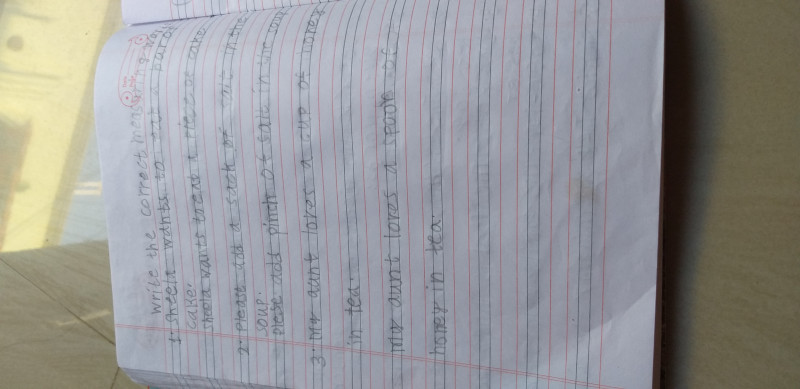 write the correct measuring wor
1. sheela wants to eat a pair of
cake.
sheela wants to eat a piece of cake.
2. Please add a sack of salt in the
soup.
Plese add pinch of salt in the soup
3. My aunt loves a cup of honey
in tea.
My aunt loves a spoon of
honey in tea.